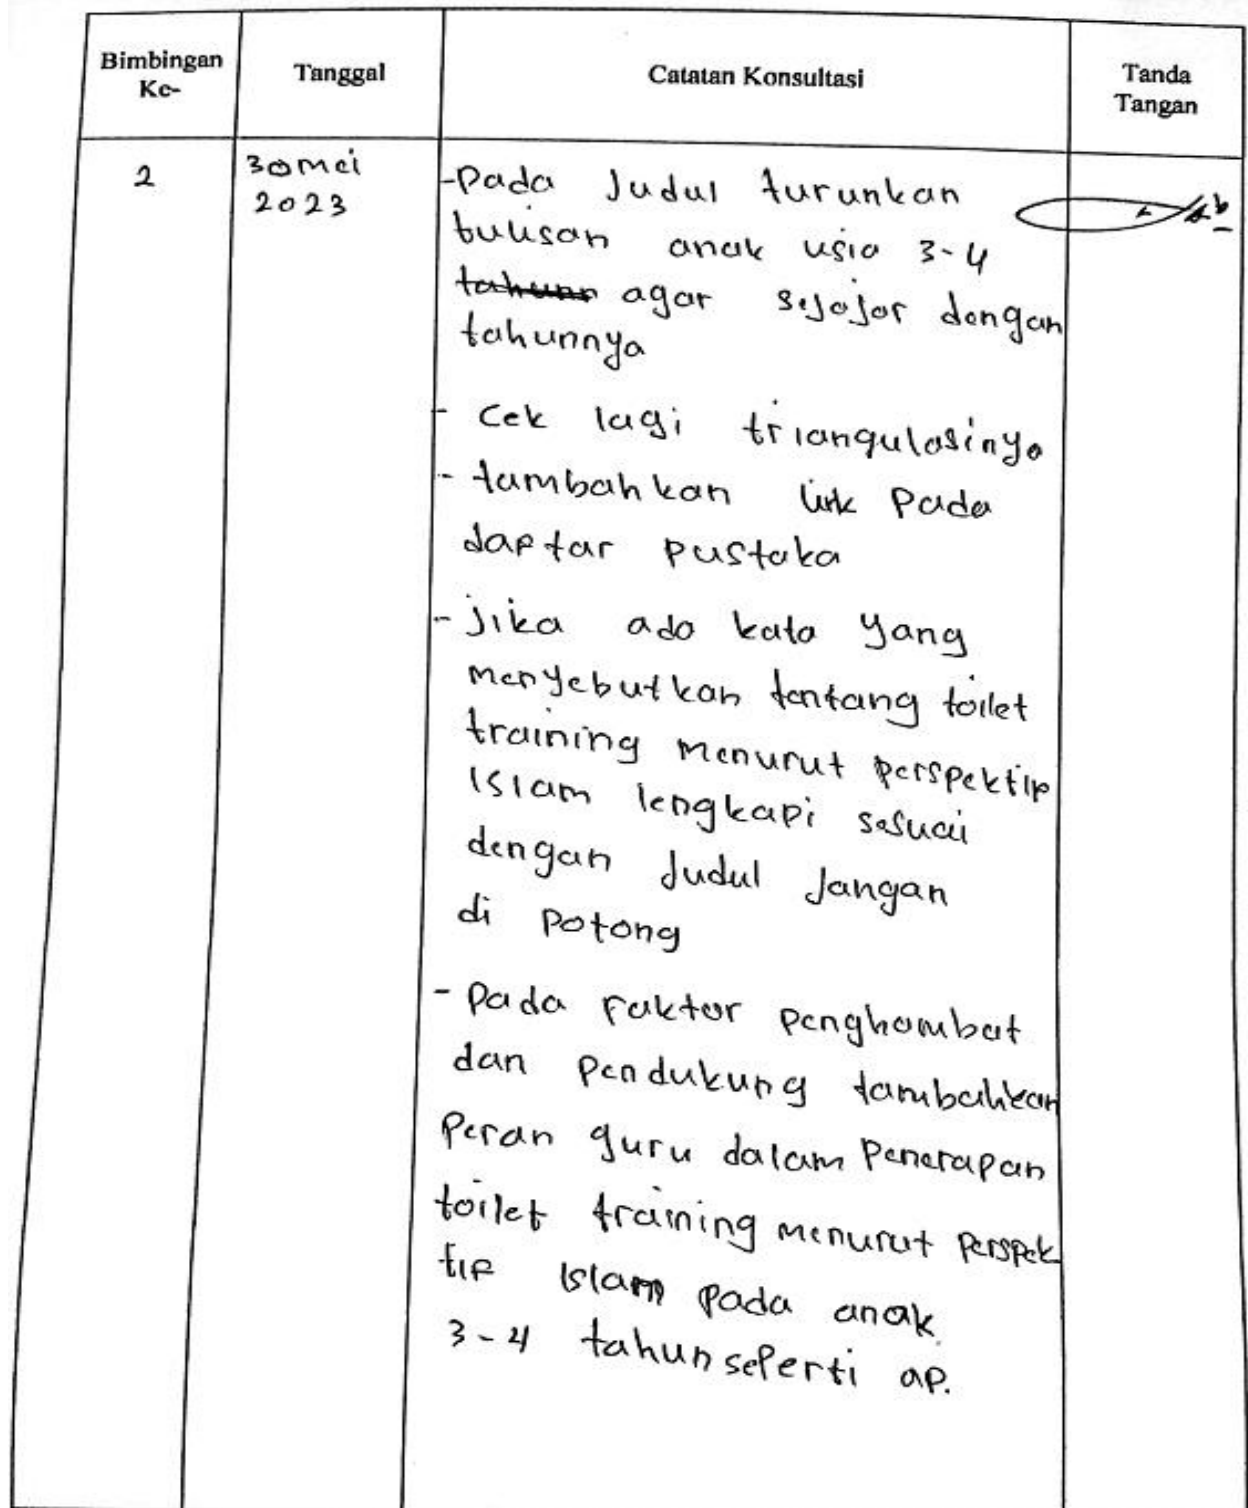 Bimbingan Ke-
Tanggal
Catatan Konsultasi
Tanda Tangan
2
30 mei
2023
- pada Judul turunkan
tulisan anak usia 3-4
tahunn agar sejajar dengan
tahunnya
- Cek lagi triangulasinya
- tambahkan link pada
daptar pustaka
- jika ada kata yang
menyebutkan tentang toilet
training menurut perspektip
Islam lengkapi sesuai
dengan Judul Jangan
di potong
- Pada Faktor penghambat
dan pendukung tambahkan
Peran guru dalam Penerapan
toilet training menurut Perspek
tip Islam pada anak
3-4 tahun seperti ap.